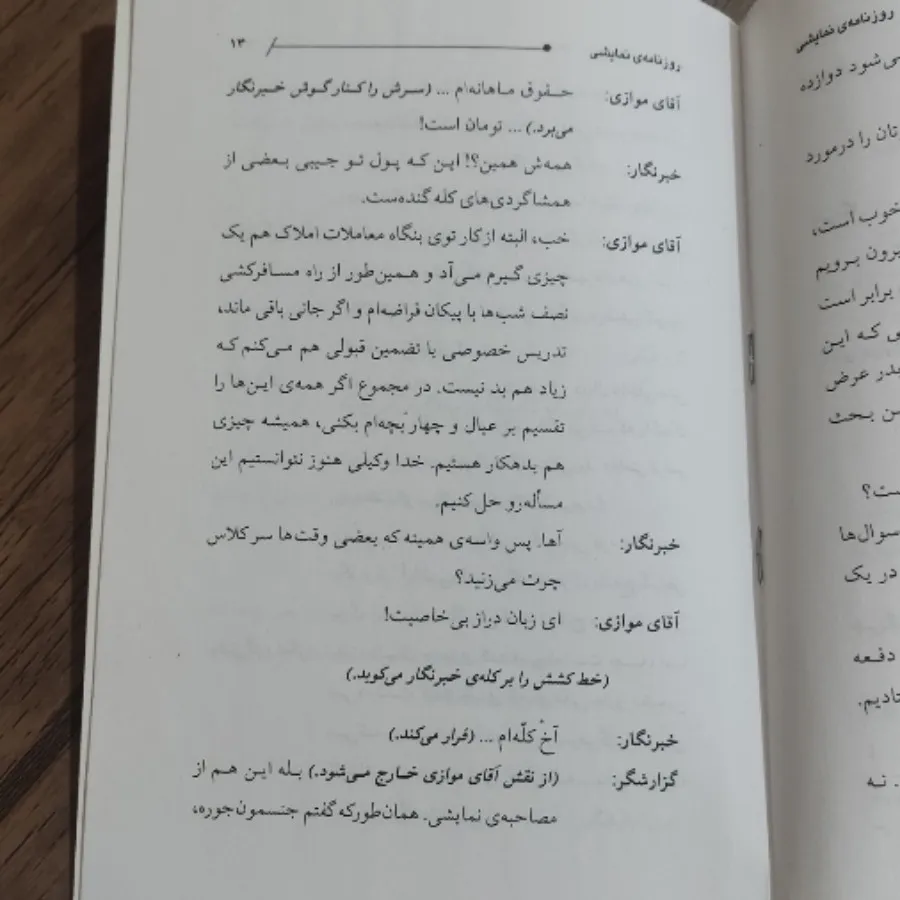 روزنامه‌ی نمایشی ۱۳
آقای موازی: حقوق ماهانه‌ام ... (سرش را کنار گوش خبرنگار
می‌برد.) ... تومان است!
خبرنگار: همه‌ش همین؟! این که پول تو جیبی بعضی از
همشاگردی‌های کله گنده‌ست.
آقای موازی: خب، البته از کار توی بنگاه معاملات املاک هم یک
چیزی گیرم می‌آد و همین‌طور از راه مسافرکشی
نصف شب‌ها با پیکان قراضه‌ام و اگر جانی باقی ماند،
تدریس خصوصی با تضمین قبولی هم می‌کنم که
زیاد هم بد نیست. در مجموع اگر همه‌ی این‌ها را
تقسیم بر عیال و چهار بچه‌ام بکنی، همیشه چیزی
هم بدهکار هستیم. خدا وکیلی هنوز نتوانستیم این
مسأله‌رو حل کنیم.
خبرنگار: آها. پس واسه‌ی همینه که بعضی وقت‌ها سر کلاس
چرت می‌زنید؟
آقای موازی: ای زبان دراز بی‌خاصیت!
(خط کشش را بر کله‌ی خبرنگار می‌کوید.)
خبرنگار: آخْ کلّه‌ام ... (فرار می‌کند.)
گزارشگر: (از نقش آقای موازی خارج می‌شود.) بله این هم از
مصاحبه‌ی نمایشی. همان‌طورکه گفتم جنسمون جوره،
روزنامه‌ی نمایشی
می‌شود دوازده
تان را درمورد
خوب است،
یرون برویم
برابر است
ی که این
قدر عرض
من بحث
ست؟
سوال‌ها
در یک
دفعه
تادیم.
. نه